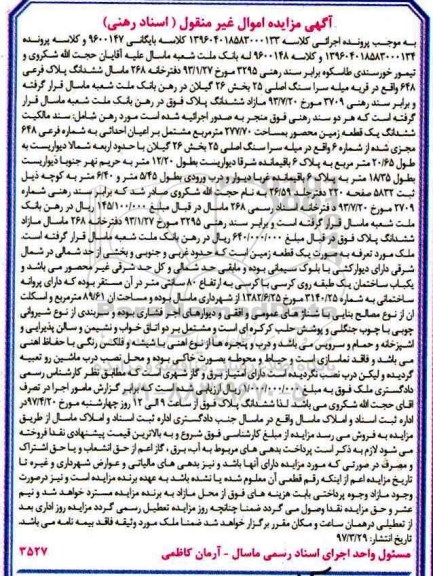 آگهی مزایده اموال غیر منقول ( اسناد رهنی)
به موجب پرونده اجرائی کلاسه ۱۳۹۶۰۴۰۱۸۵۸۳۰۰۰۱۳۳ کلاسه بایگانی ۹۶۰۰۱۴۷ و کلاسه پرونده
۱۳۹۶۰۴۰۱۸۵۸۳۰۰۰۱۳۴ و کلاسه ۹۶۰۰۱۴۸ له بانک ملت شعبه ماسال علیه آقایان حجت الله شکروی و
تیمور خورسندی طاسکوه برابر سند رهنی ۳۲۹۵ مورخ ۹۳/۱/۲۷ دفترخانه ۲۶۸ ماسال ششدانگ پلاک فرعی
۶۴۸ واقع در قریه میله سرا سنگ اصلی ۲۵ بخش ۲۶ گیلان در رهن بانک ملت شعبه ماسال قرار گرفته
و برابر سند رهنی ۳۷۰۹ مورخ ۹۳/۷/۲۰ مازاد ششدانگ پلاک فوق در رهن بانک ملت شعبه ماسال قرار
گرفته است که هر دو سند رهنی فوق منجر به صدور اجرائیه شده است مورد رهن شامل: سند مالکیت
ششدانگ یک قطعه زمین محصور بمساحت ۲۷۷/۷۰ مترمربع مشتمل بر اعیان احداثی به شماره فرعی ۶۴۸
مجزی شده از شماره ۶ واقع در میله سرا سنگ اصلی ۲۵ بخش ۲۶ گیلان با حدود اربعه شمالا دیواریست به
طول ۲۰/۶۵ متر مربع به پلاک ۶ باقیمانده شرقا دیواریست بطول ۱۲/۲۰ متر به حریم نهر جنوبا دیواریست
بطول ۱۸/۳۵ متر به پلاک ۶ باقیمانده غربا دیوار و درب ورودی بطول ۵/۴۵ متر و ۶/۴۰ متر به کوچه ذیل
ثبت ۵۸۳۲ صفحه ۲۲۰ دفتر جلد ۳۶/۵۹ به نام حجت الله شکروی صادر شد که برابر سند رهنی شماره
۳۷۰۹ مورخ ۹۳/۷/۲۰ دفترخانه اسناد رسمی ۲۶۸ ماسال در قبال مبلغ ۱۴۵/۱۰۰/۰۰۰ ریال در رهن بانک
ملت شعبه ماسال قرار گرفته است و برابر سند رهنی ۳۲۹۵ مورخ ۹۳/۱/۲۷ دفترخانه ۲۶۸ ماسال مازاد
ششدانگ پلاک فوق در قبال مبلغ ۶۴۰/۰۰۰/۰۰۰ ریال در رهن بانک ملت شعبه ماسال قرار گرفته است
ملک مورد تعرفه به صورت یک قطعه زمین می باشد که حدود غربی و جنوبی و بخشی از حد شمالی در شمال
شرقی دارای دیوارکشی با بلوک سیمانی بوده و مابقی حد شمالی و کل حد شرقی غیر محصور می باشد و
یکباب ساختمان یک طبقه روی کرسی با کرسی به ارتفاع ۸۰ سانتی متر در آن مستقر بوده که دارای پروانه
ساختمانی به شماره ۲۱۴۰/۲۵ مورخ ۱۳۸۲/۶/۲۵ از شهرداری ماسال بوده و مساحت آن ۸۹/۶۱ مترمربع و اسکلت
آن از نوع مصالح بنایی با شناژ های عمودی و افقی و دیوارهای آجر فشاری بوده و سربندی از نوع شیروانی
چوبی با چوب جنگلی و پوشش حلب کرکره ای است و مشتمل بر دو اتاق خواب و نشیمن و سالن پذیرایی و
آشپزخانه و حمام و سرویس می باشد و درب و پنجره ها از نوع آهنی با شیشه و فلکس رنگی با حفاظ آهنی
می باشد و فاقد نماسازی است و حیاط و محوطه بصورت خاکی بوده و محل نصب درب ماشین رو تعبیه
گردیده و لیکن درب نصب نگردیده است دارای امتیاز برق و گاز شهری است که مطابق نظر کارشناس رسمی
دادگستری ملک فوق به مبلغ ۰۰۰/۰۰۰ ریال ارزیابی شده است که بنا بر گزارش مامور اجرا در تصرف
آقای حجت الله شکروی می باشد. لذا ششدانگ پلاک فوق از ساعت ۹ الی ۱۲ روز چهارشنبه مورخ ۹۷/۴/۲۰در
اداره ثبت اسناد و املاک ماسال واقع در ماسال جنب دادگستری اداره ثبت اسناد و املاک ماسال از طریق
مزایده به فروش می رسد مزایده از مبلغ کارشناسی فوق شروع و به بالاترین قیمت پیشنهادی نقدا فروخته
می شود لازم به ذکر است پرداخت بدهی های مربوط به آب، برق ، گاز اعم از حق انشعاب و یا حق اشتراک
و مصرف در صورتی که مورد مزایده دارای آنها باشد و نیز بدهی های مالیاتی و عوارض شهرداری و غیره تا
تاریخ مزایده اعم از اینکه رقم قطعی آن معلوم شده یا نشده باشد به عهده برنده مزایده است و نیز درصورت
وجود مازاد وجوه پرداختی بابت هزینه های فوق از محل مازاد به برنده مزایده مسترد خواهد شد و نیم
عشر و حق مزایده نقدا وصول می گردد ضمنا چنانچه روز مزایده تعطیل رسمی گردد مزایده روز اداری بعد
از تعطیلی درهمان ساعت و مکان مقرر برگزار خواهد شد ضمنا ملک مورد وثیقه فاقد بیمه نامه می باشد.
تاریخ انتشار: ۹۷/۳/۲۹
مسئول واحد اجرای اسناد رسمی ماسال - آرمان کاظمی ۳۵۲۷